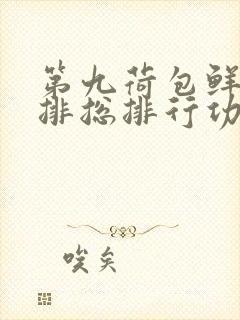 第九荷包鲜
排总排行功
唉矣